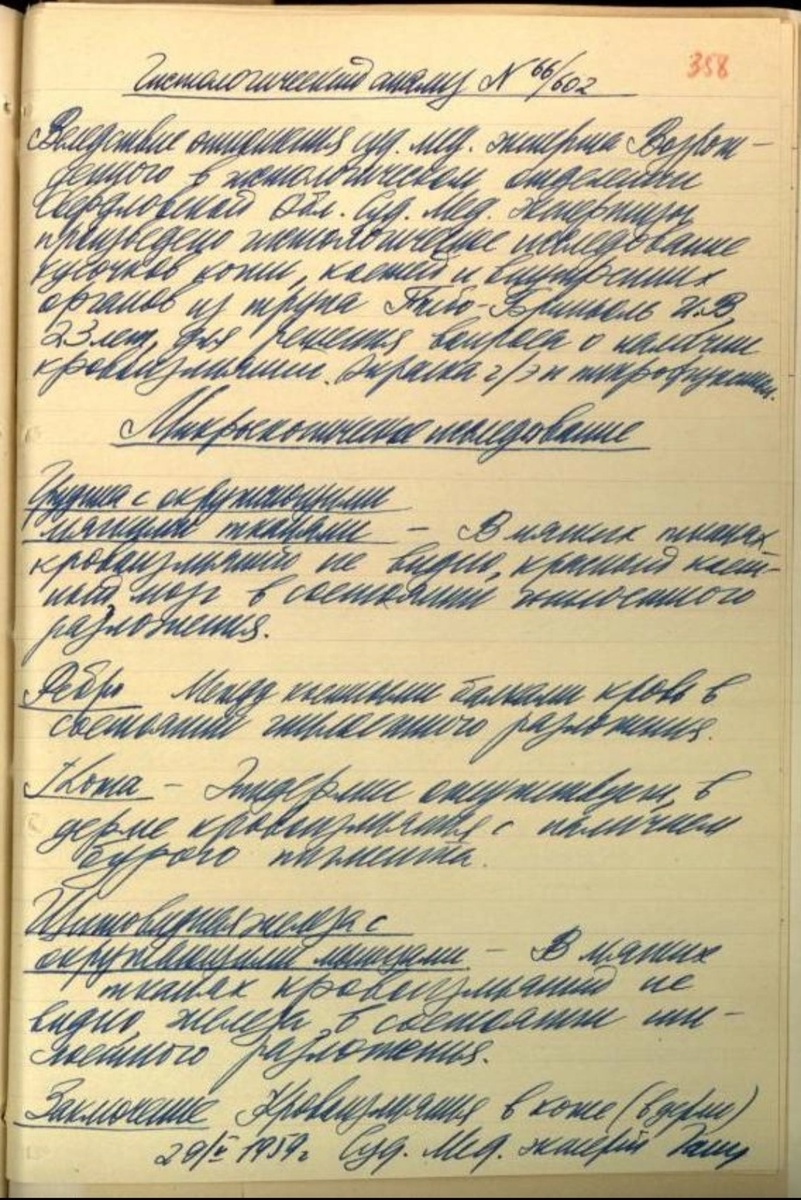 Гистологический анализ N 66/602
358
Вследствие отношения суд. мед. эксперта Возрож-
денного в гистологическом отделении
Свердловской Обл. Суд. Мед. Экспертизы
произведено гистологическое исследование
кусочков кожи, костей и внутренних
органов из трупа Тибо-Бриньоль Н.В.
23 лет, для решения вопроса о наличии
кровоизлияний. Окраска г/э и пикрофуксин.
Микроскопическое исследование
Грудина с окружающими
мягкими тканями – В мягких тканях
кровоизлияний не видно, красный кост-
ный мозг в состоянии гнилостного
разложения.
Ребро Между костными балками кровь в
состоянии гнилостного разложения.
Кожа – Эпидермис отсутствует, в
дерме кровоизлияния с наличием
бурого пигмента.
Щитовидная железа с
окружающими мышцами – В мягких
тканях кровоизлияний не
видно, железа в состоянии гни-
лостного разложения.
Заключение Кровоизлияния в коже (в дерме)
29/V 1959г Суд. Мед. эксперт